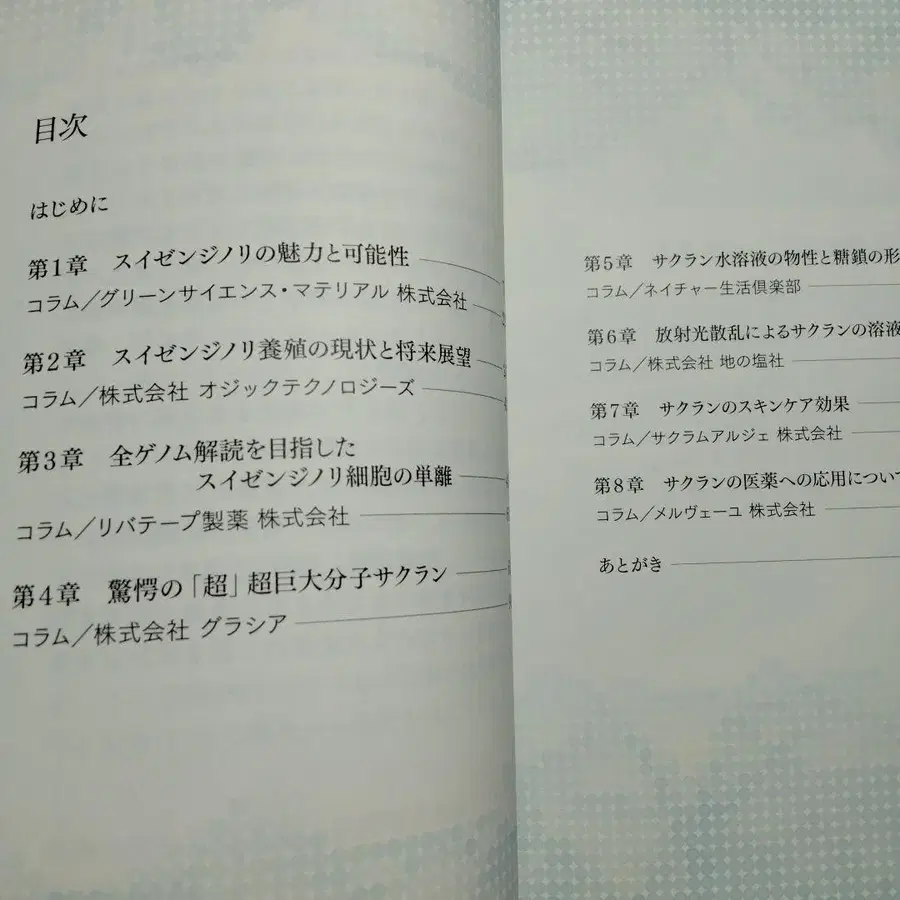 目次
はじめに
第1章 スイゼンジノリの魅力と可能性
コラム／グリーンサイエンス・マテリアル 株式会社
第2章 スイゼンジノリ養殖の現状と将来展望
コラム／株式会社 オジックテクノロジーズ
第3章 全ゲノム解読を目指した
スイゼンジノリ細胞の単離
コラム／リバテープ製薬 株式会社
第4章 驚愕の「超」超巨大分子サクラン
コラム／株式会社 グラシア
第5章 サクラン水溶液の物性と糖鎖の形
コラム／ネイチャー生活倶楽部
第6章 放射光散乱によるサクランの溶液
コラム／株式会社 地の塩社
第7章 サクランのスキンケア効果
コラム／サクラムアルジェ 株式会社
第8章 サクランの医薬への応用について
コラム／メルヴェーユ 株式会社
あとがき